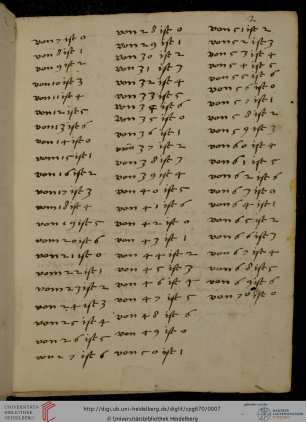 2
von 7 ist 0
von 8 ist 1
von 9 ist 2
von 10 ist 3
von 11 ist 4
von 12 ist 5
von 13 ist 6
von 14 ist 0
von 15 ist 1
von 16 ist 2
von 17 ist 3
von 18 ist 4
von 19 ist 5
von 20 ist 6
von 21 ist 0
von 22 ist 1
von 23 ist 2
von 24 ist 3
von 25 ist 4
von 26 ist 5
von 27 ist 6
von 28 ist 0
von 29 ist 1
von 30 ist 2
von 31 ist 3
von 32 ist 4
von 33 ist 5
von 34 ist 6
von 35 ist 0
von 36 ist 1
von 37 ist 2
von 38 ist 3
von 39 ist 4
von 40 ist 5
von 41 ist 6
von 42 ist 0
von 43 ist 1
von 44 ist 2
von 45 ist 3
von 46 ist 4
von 47 ist 5
von 48 ist 6
von 49 ist 0
von 50 ist 1
von 51 ist 2
von 52 ist 3
von 53 ist 4
von 54 ist 5
von 55 ist 6
von 56 ist 0
von 57 ist 1
von 58 ist 2
von 59 ist 3
von 60 ist 4
von 61 ist 5
von 62 ist 6
von 63 ist 0
von 64 ist 1
von 65 ist 2
von 66 ist 3
von 67 ist 4
von 68 ist 5
von 69 ist 6
von 70 ist 0
UNIVERSITÄTS-
BIBLIOTHEK
HEIDELBERG
http://digi.ub.uni-heidelberg.de/diglit/cpg670/0007
© Universitätsbibliothek Heidelberg